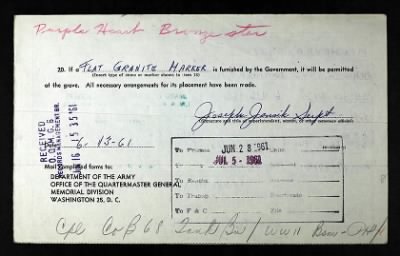 Purple Heart Bronze star
20. If a FLAT GRANITE MARKER is furnished by the Government, it will be permitted
(Insert type of stone or marker shown in item 13)
at the grave. All necessary arrangements for its placement have been made.
Joseph Jensik Supt
(Signature and title of superintendent, sexton, or other cemetery official)
6-13-61
RECEIVED
O.Q.M.G.
JUN 16 '61
Mail completed forms to:
DEPARTMENT OF THE ARMY
OFFICE OF THE QUARTERMASTER GENERAL
MEMORIAL DIVISION
WASHINGTON 25, D. C.
JUN 28 1961
JUL 5 - 1961
To
To
To
To
To F & C
File
Cpl Co B 68 Tank Bn / WW II BSM-PH